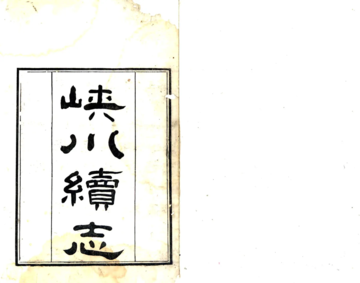 峽川續志